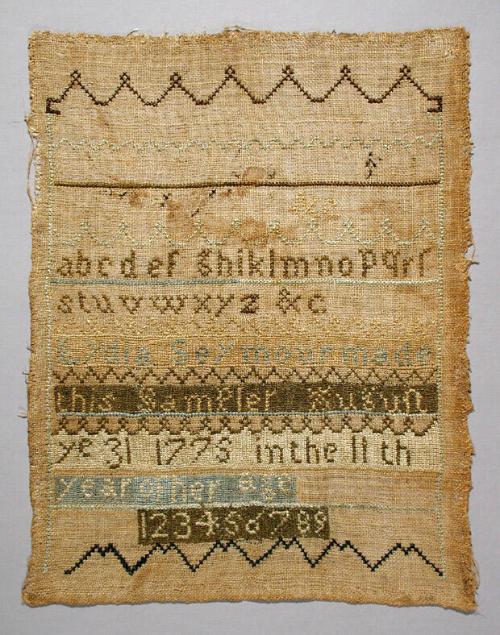 abcdef ghiklmnopqrſ
stuvwxyz &c
Lydia Seymour made
this Sampler August
ye 31 1775 in the 11 th
year of her age
123456789